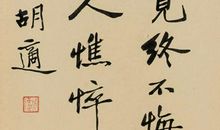 見終不悔
人憔悴
胡適